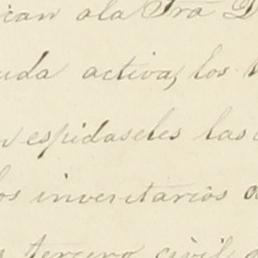 ican ala Sra D
uda activa, los
espidaseles las
os inventarios
tercero civil